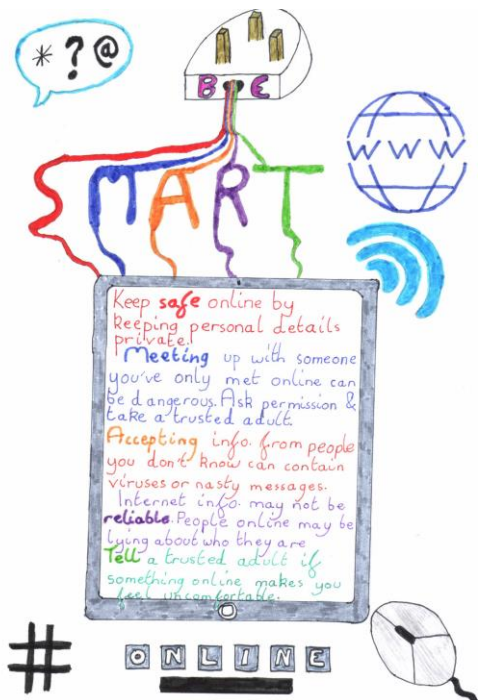 *?@
BE
WWW
SMART
Keep safe online by
keeping personal details
private!
Meeting up with someone
you've only met online can
be dangerous. Ask permission &
take a trusted adult.
Accepting info. from people
you don't know can contain
viruses or nasty messages.
Internet info. may not be
reliable. People online may be
lying about who they are
Tell a trusted adult if
something online makes you
feel uncomfortable.
#
ONLINE